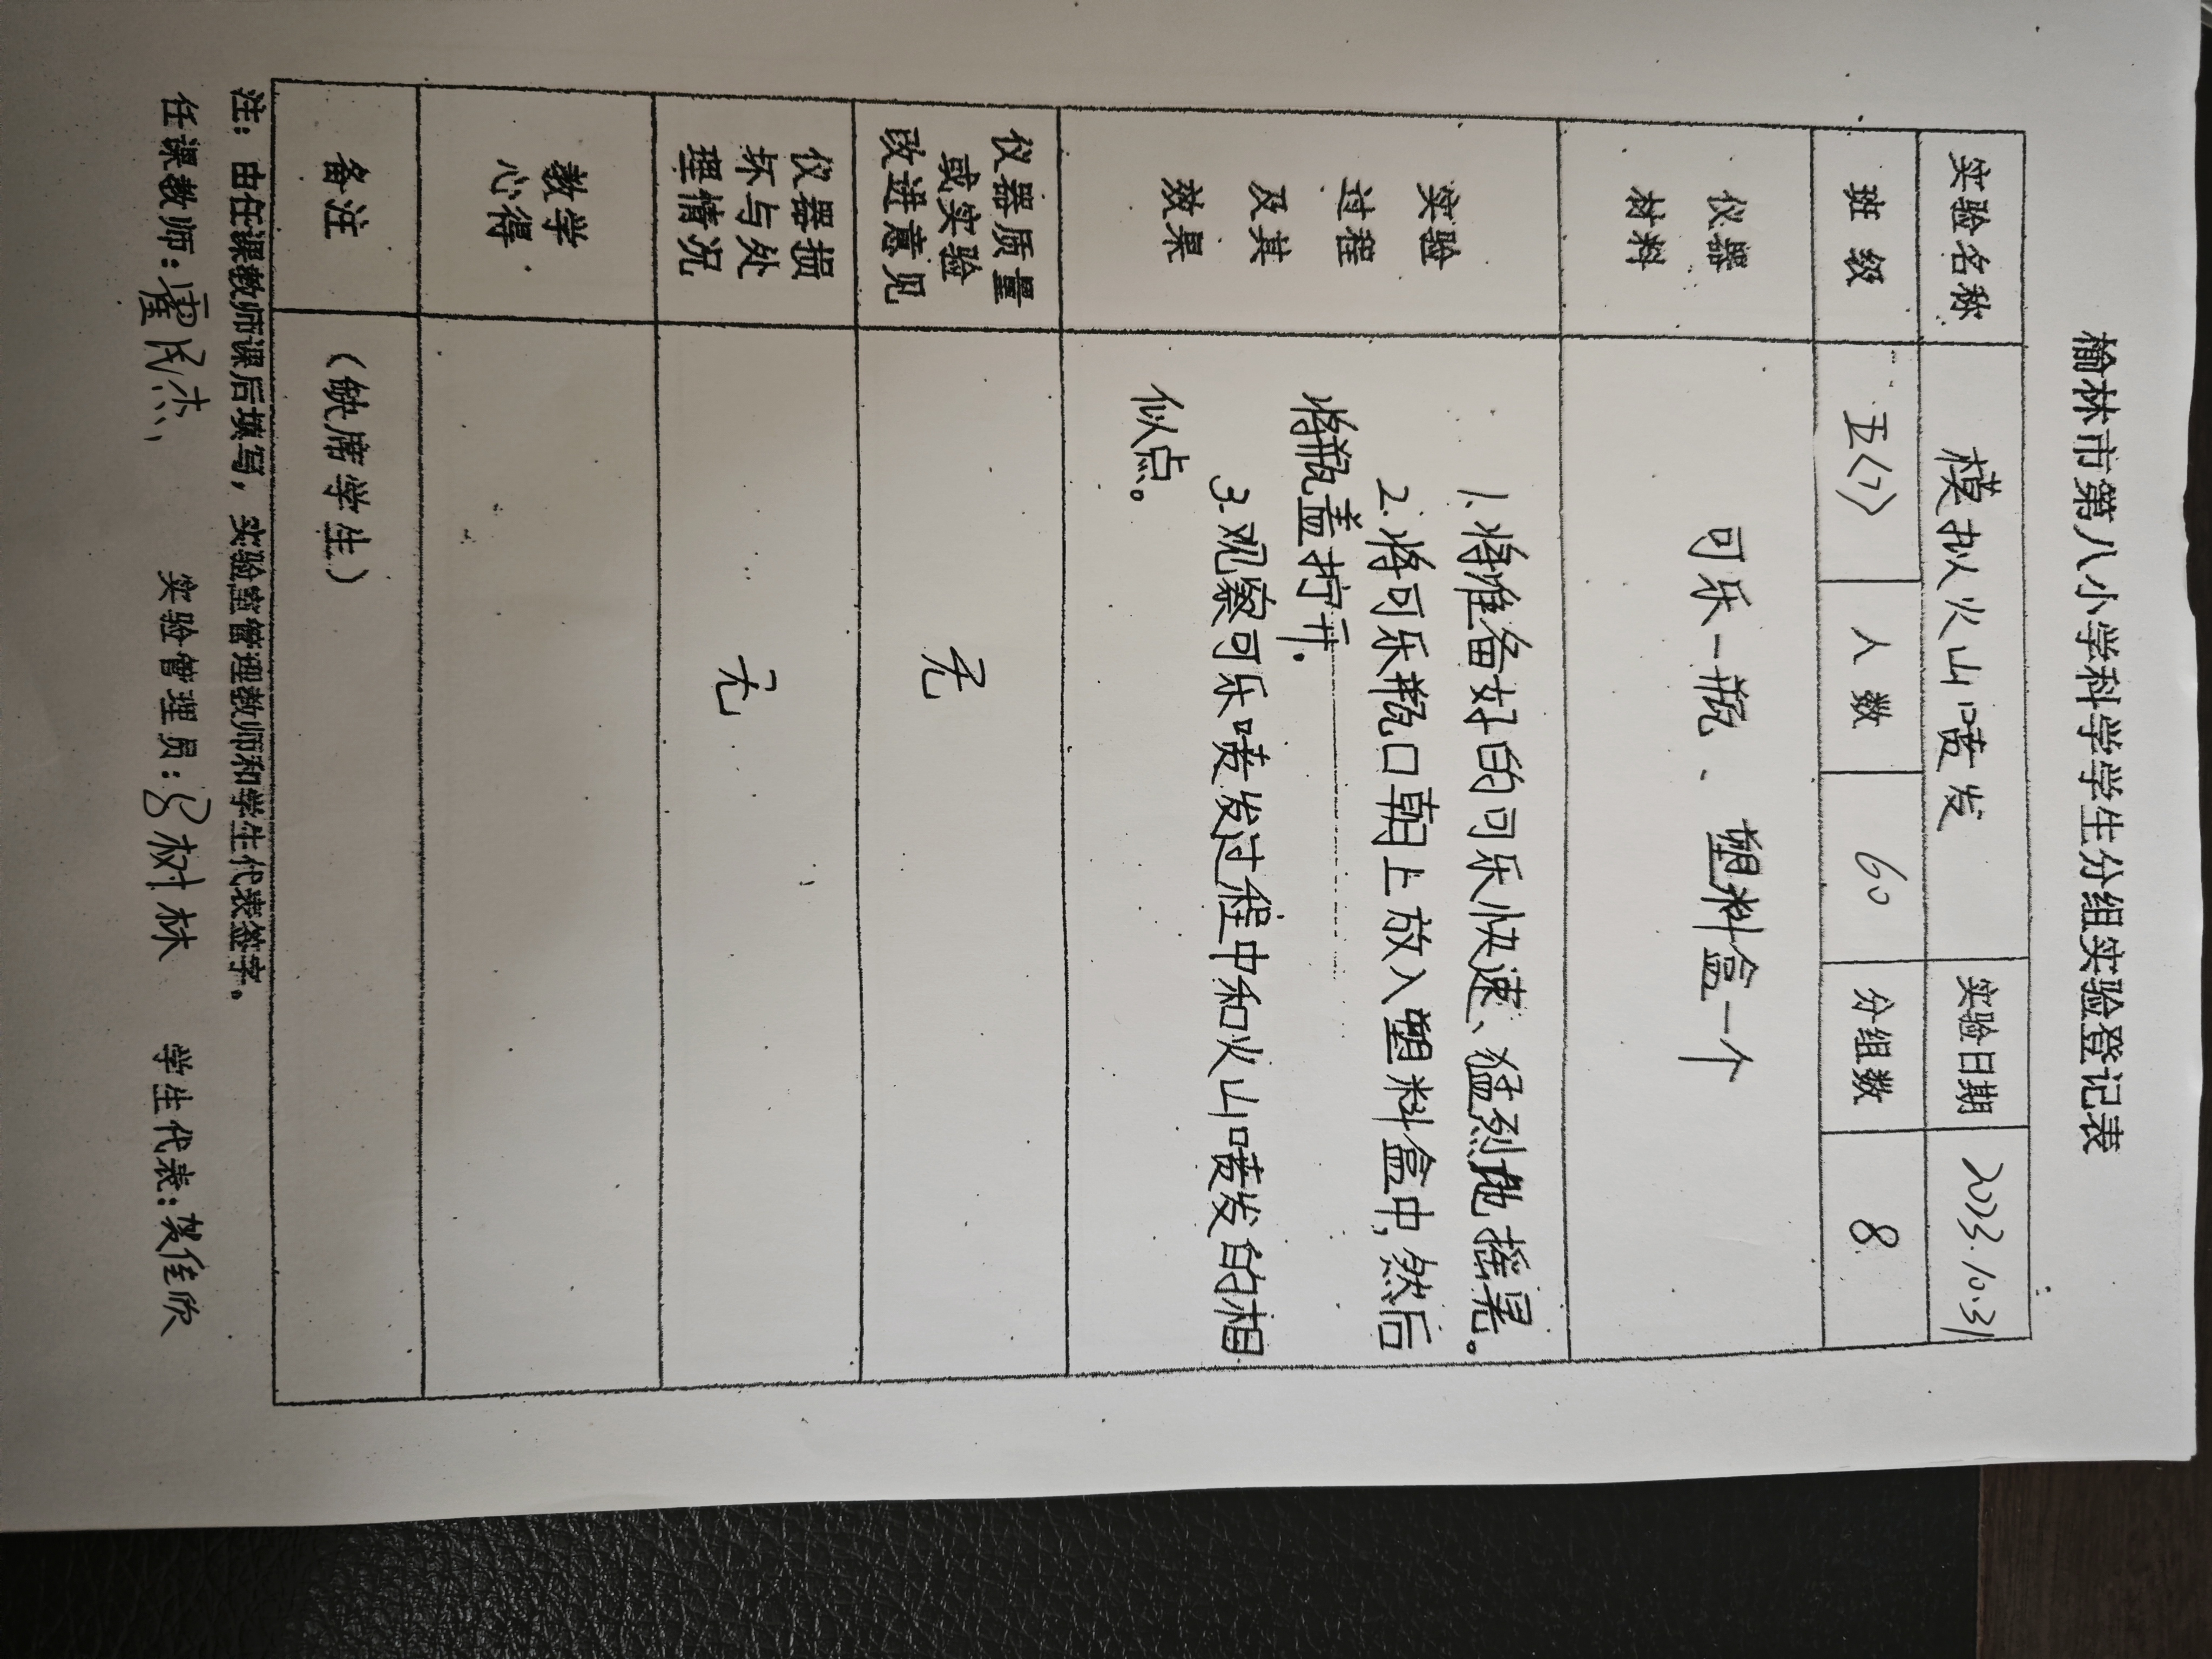 榆林市第八小学科学学生分组实验登记表
实验名称 模拟火山喷发 实验日期 2023.10.31
班级 五<7> 人数 60 分组数 8
仪器
材料
可乐一瓶、塑料盒一个
实验
过程
及其
效果
1.将准备好的可乐快速、猛烈地摇晃。
2.将可乐瓶口朝上放入塑料盒中,然后
将瓶盖拧开.
3.观察可乐喷发过程中和火山喷发的相
似点。
仪器质量
或实验
改进意见
无
仪器损
坏与处
理情况
无
教学
心得
备注 (缺席学生)
注:由任课教师课后填写,实验室管理教师和学生代表签字。
任课教师: 实验管理员: 树林 学生代表:贺佳欣